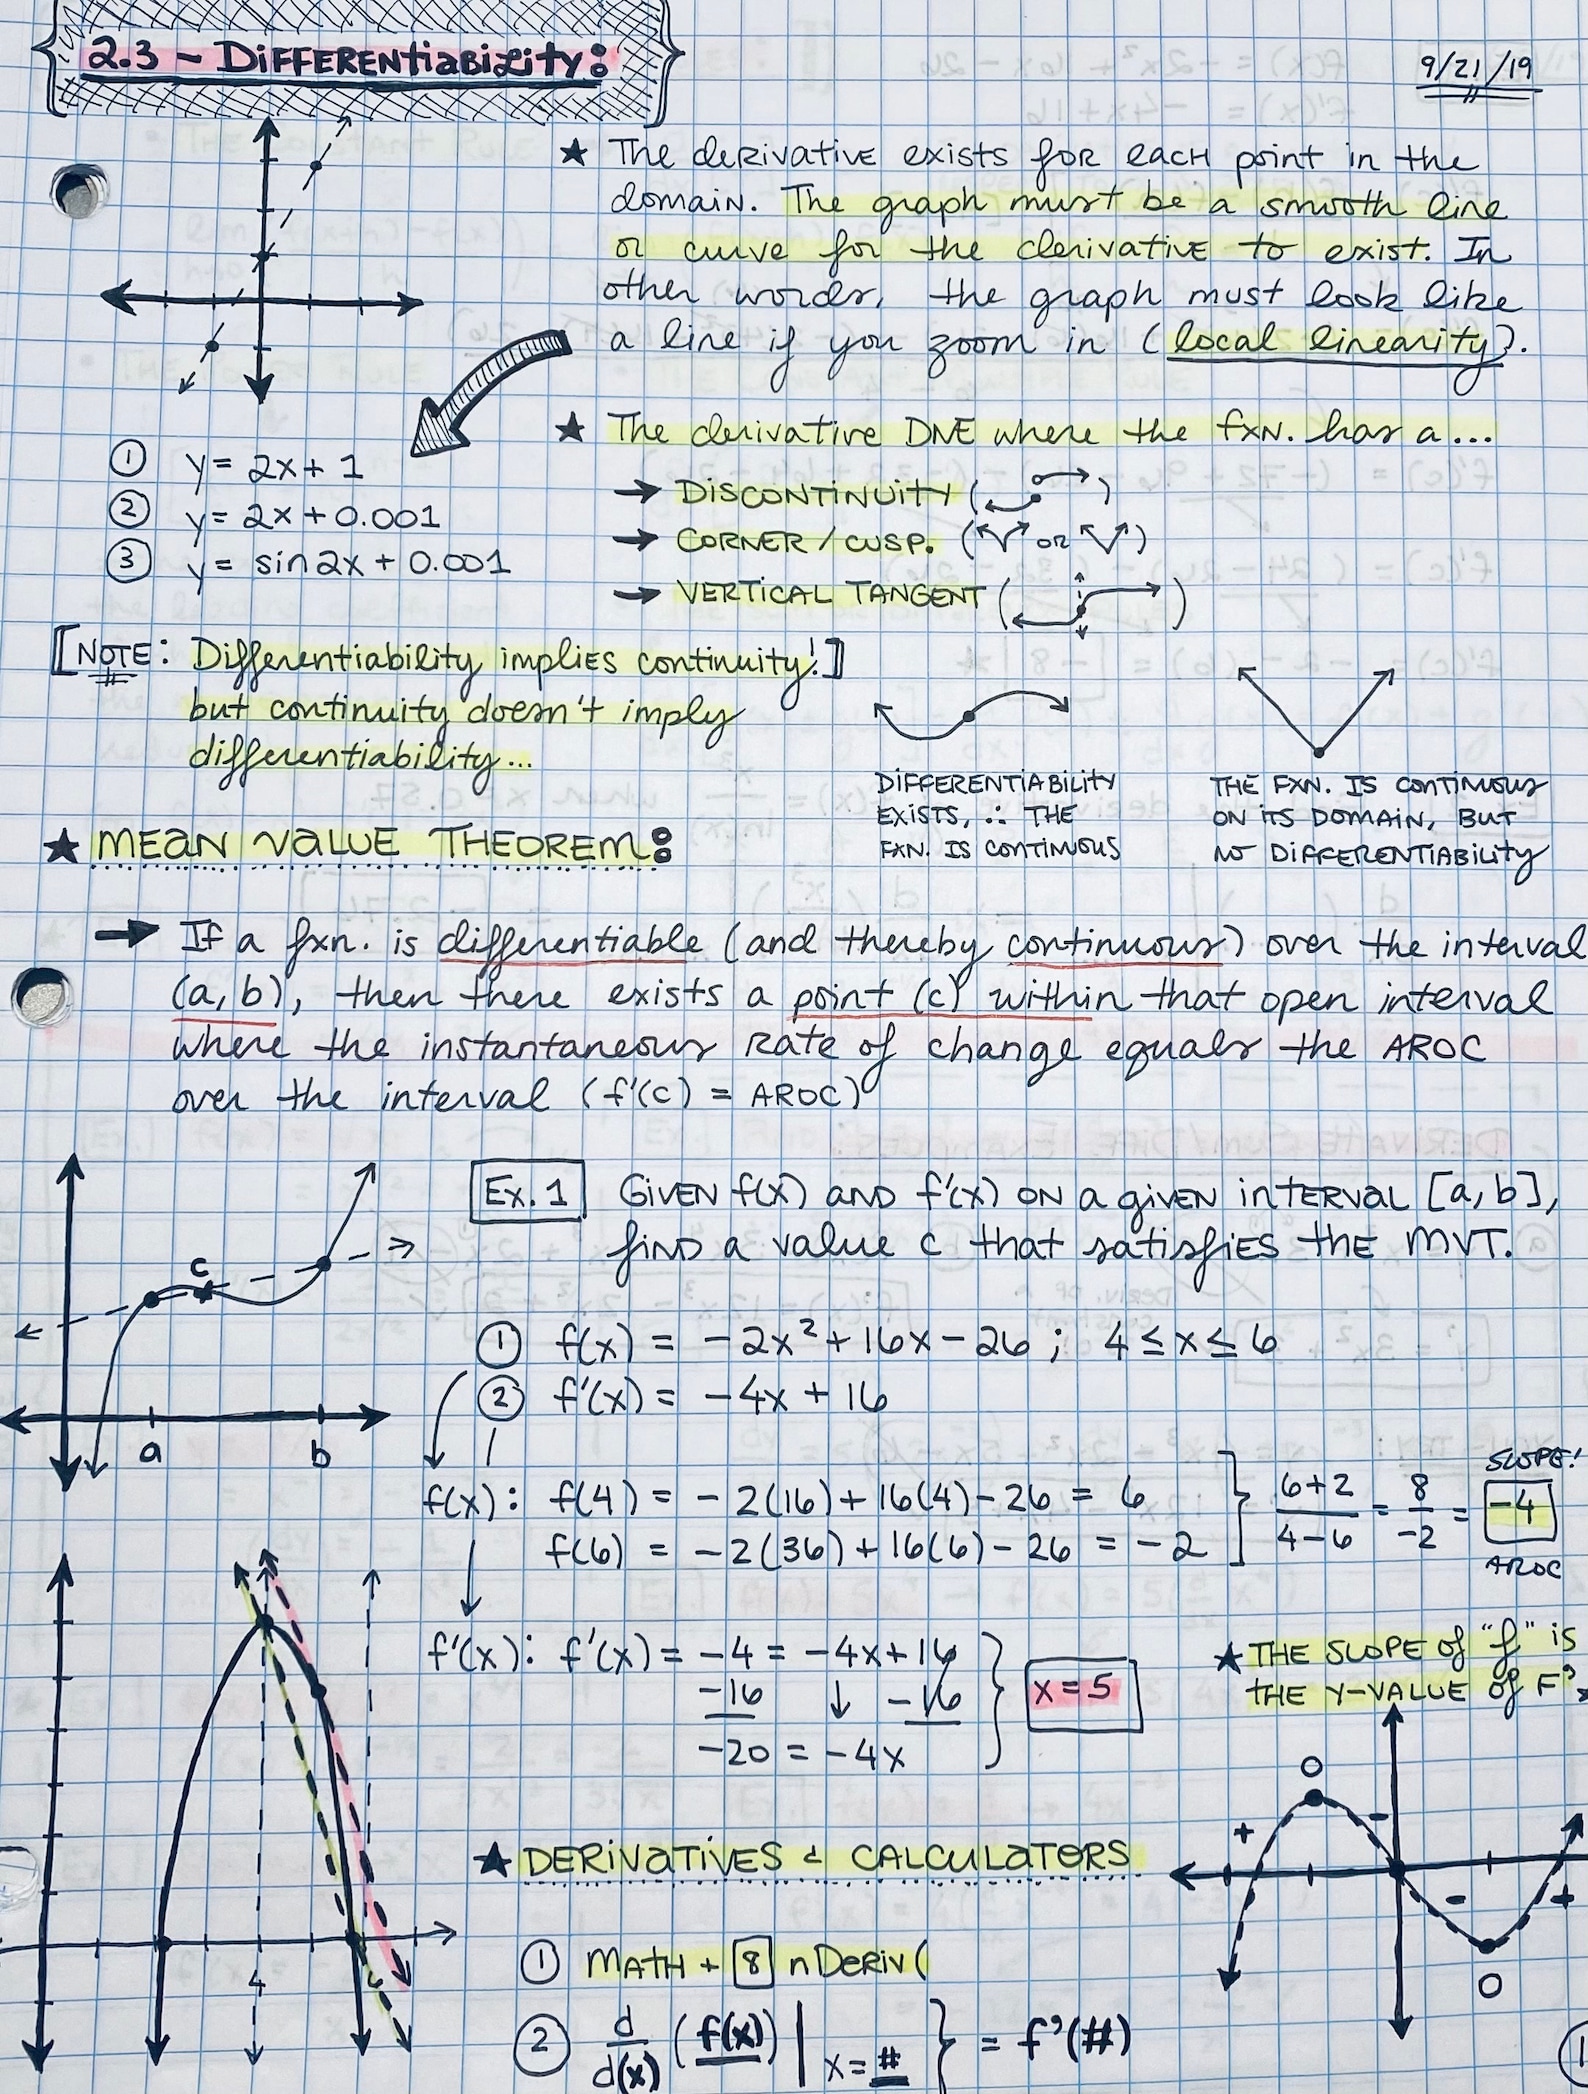 2.3 - DIFFERENTIABILITY:
9/21/19
★ The derivative exists for each point in the
domain. The graph must be a smooth line
or curve for the derivative to exist. In
other words, the graph must look like
a line if you zoom in (local linearity).
① y = 2x + 1
② y = 2x + 0.001
③ y = sin2x + 0.001
★ The derivative DNE where the fxn. has a...
→ DISCONTINUITY ( )
→ CORNER / CUSP. ( OR )
→ VERTICAL TANGENT ( )
[NOTE: Differentiability implies continuity!]
but continuity doesn't imply
differentiability...
DIFFERENTIABILITY
EXISTS, ∴ THE
FXN. IS CONTINUOUS
THE FXN. IS CONTINUOUS
ON ITS DOMAIN, BUT
NO DIFFERENTIABILITY
★ MEAN VALUE THEOREM:
→ If a fxn. is differentiable (and thereby continuous) over the interval
(a, b), then there exists a point (c) within that open interval
where the instantaneous rate of change equals the AROC
over the interval (f'(c) = AROC)
c
a b
Ex. 1 GIVEN f(x) AND f'(x) ON A GIVEN INTERVAL [a, b],
find a value c that satisfies the MVT.
① f(x) = -2x² + 16x - 26 ; 4 ≤ x ≤ 6
② f'(x) = -4x + 16
f(x): f(4) = -2(16) + 16(4) - 26 = 6
f(6) = -2(36) + 16(6) - 26 = -2
6+2 / 4-6 = 8 / -2 = -4
SLOPE!
AROC
f'(x): f'(x) = -4 = -4x + 16
-16 ↓ -16
-20 = -4x
x = 5
★ THE SLOPE OF "f" IS
THE Y-VALUE OF F'
4 6
0
+ - - +
0
★ DERIVATIVES & CALCULATORS
① MATH + 8 nDeriv(
② d/d(x) (f(x)) | x=# } = f'(#)